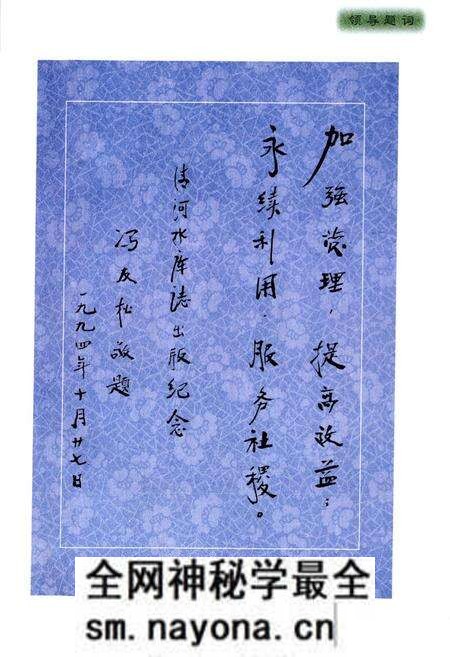 领导题词
加强管理，提高效益；
永续利用，服务社稷。
清河水库志出版纪念
冯友松敬题
一九九四年十月廿七日
全网神秘学最全
sm.nayona.cn